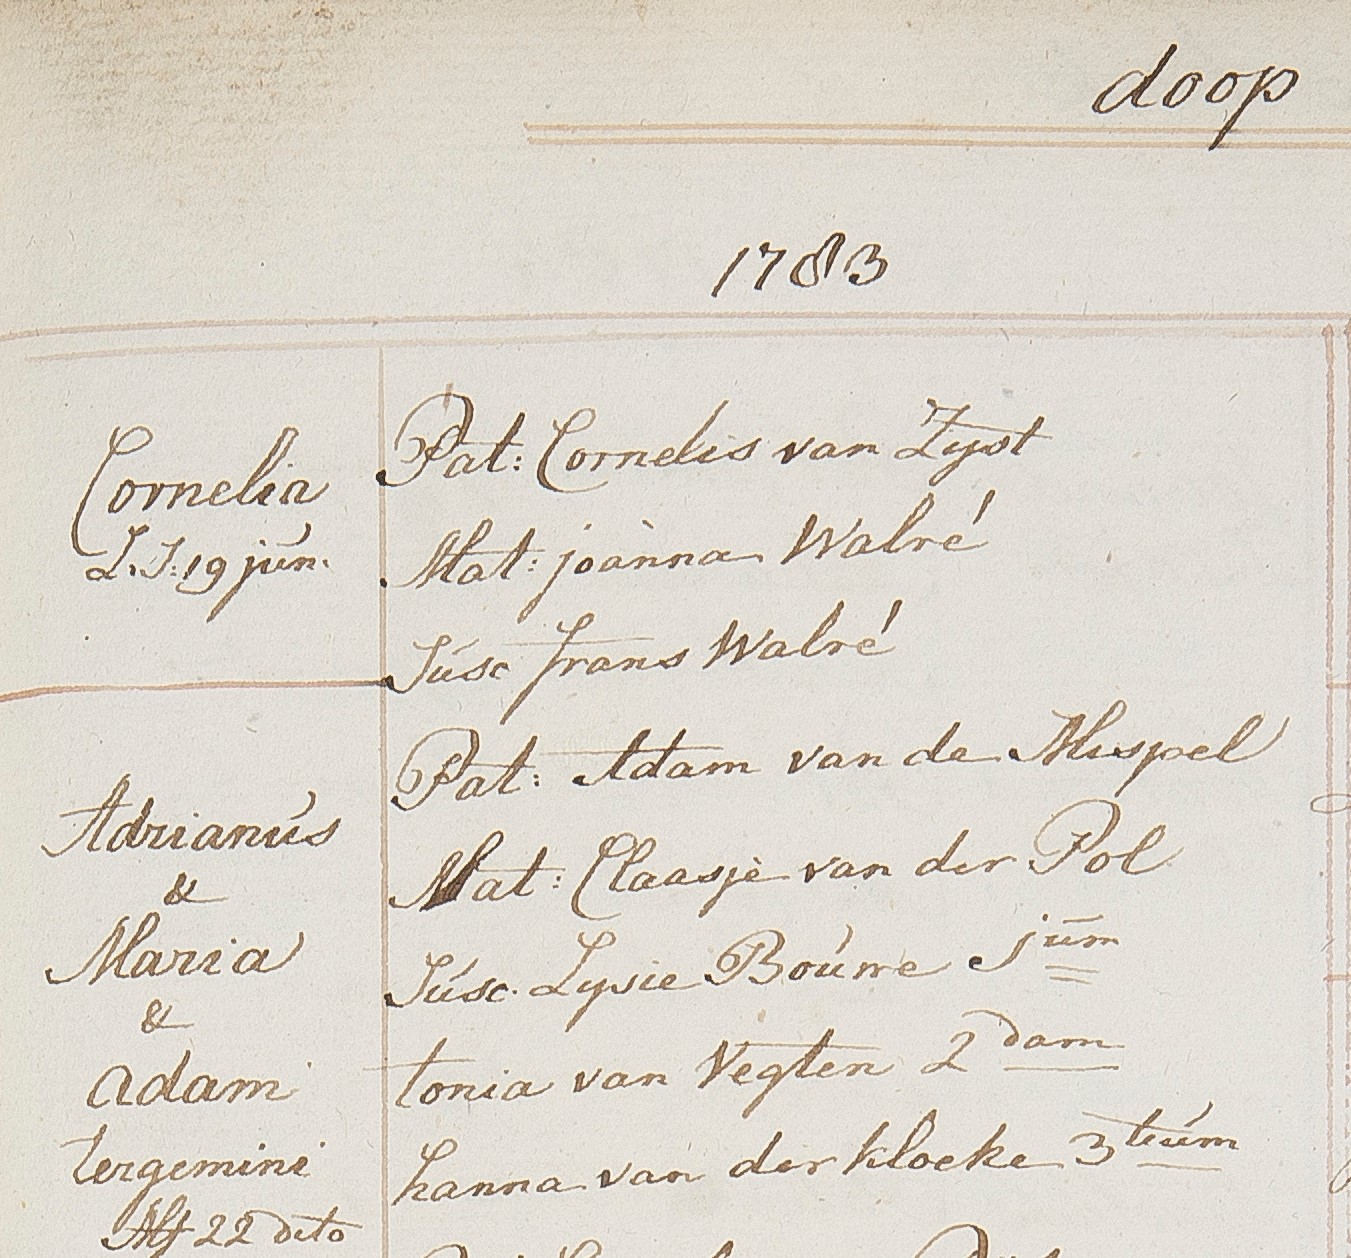 doop
1783
Cornelia
L.J: 19 jun.
Pat: Cornelis van Zyst
Mat: joànna Walré
Súsc Frans Walré
Adrianús
&
Maria
&
adam
tergemini
22 dito
Pat: Adam van de Mispel
Mat: Claasje van der Pol
Súsc. Lysie Boúrre
tonia van Vegten 2 dam
hanna van der klocke 3 tiúm